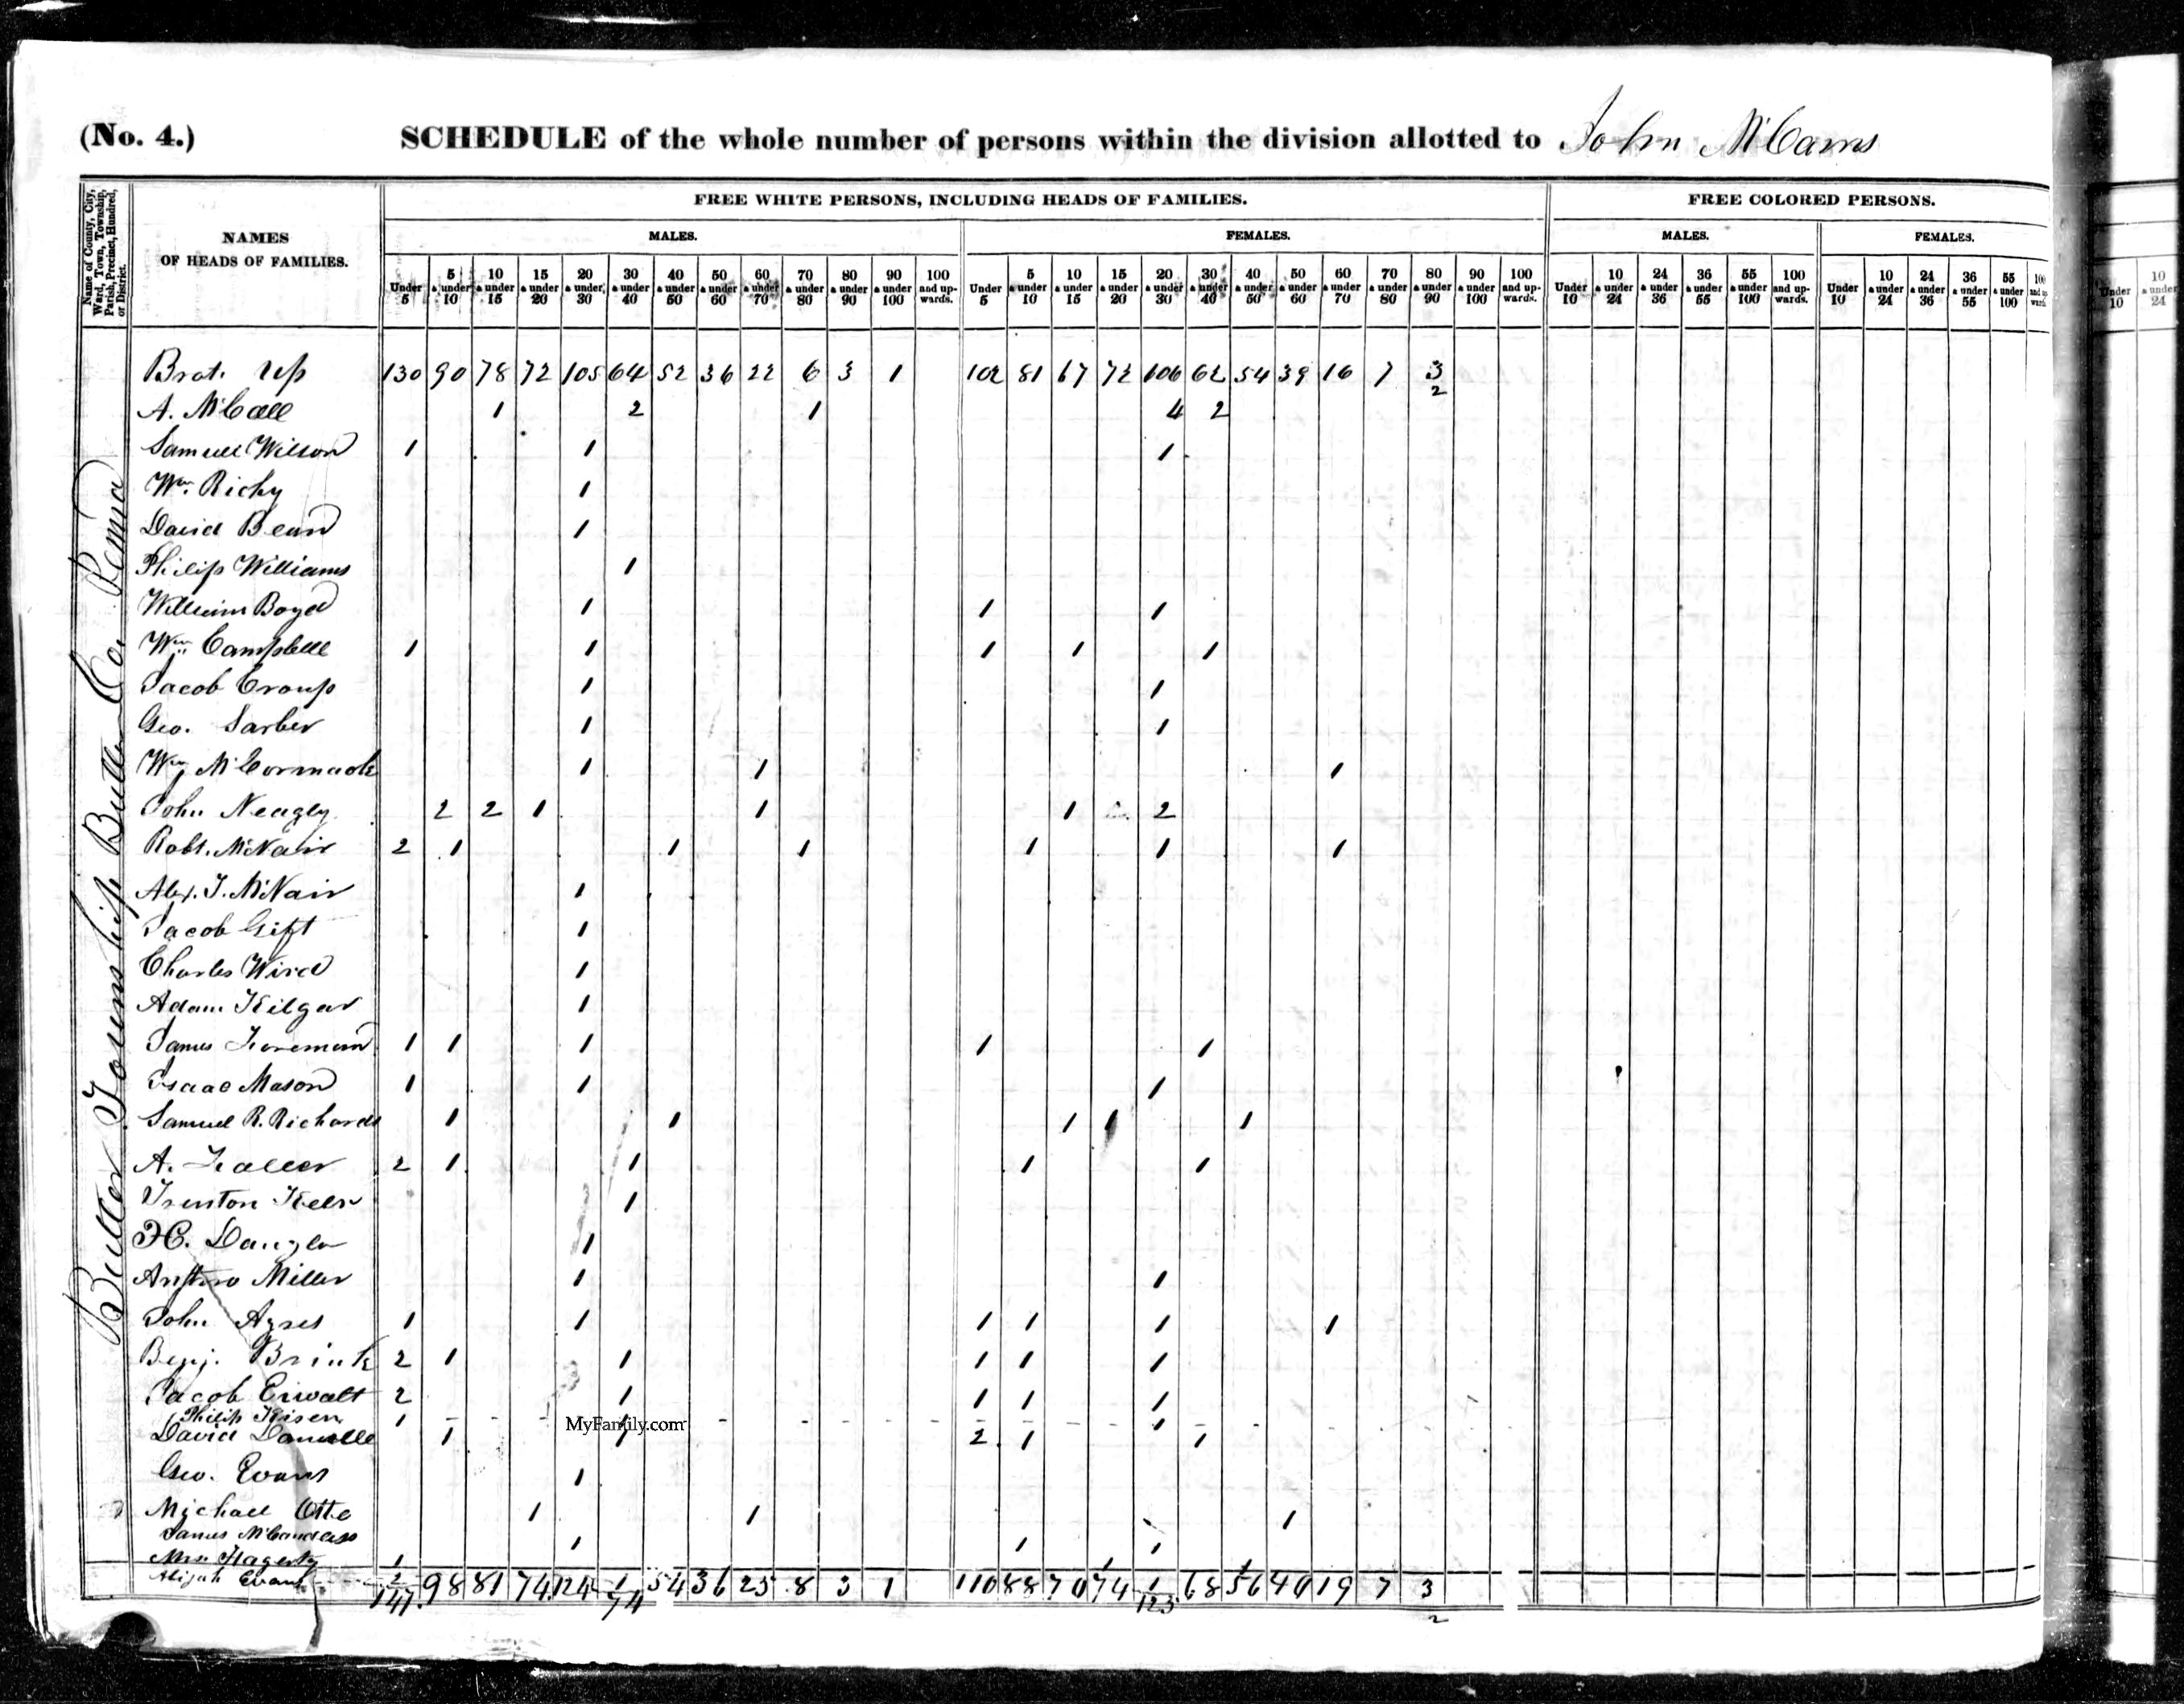 (No. 4.) SCHEDULE of the whole number of persons within the division allotted to John McCams
Name of County, City, Ward, Town, Township, Parish, Precinct, Hundred, or District.
NAMES OF HEADS OF FAMILIES.
FREE WHITE PERSONS, INCLUDING HEADS OF FAMILIES.
FREE COLORED PERSONS.
MALES. FEMALES. MALES. FEMALES.
Under 5 5 & under 10 10 & under 15 15 & under 20 20 & under 30 30 & under 40 40 & under 50 50 & under 60 60 & under 70 70 & under 80 80 & under 90 90 & under 100 100 and upwards. Under 5 5 & under 10 10 & under 15 15 & under 20 20 & under 30 30 & under 40 40 & under 50 50 & under 60 60 & under 70 70 & under 80 80 & under 90 90 & under 100 100 and upwards. Under 10 10 & under 24 24 & under 36 36 & under 55 55 & under 100 100 and upwards. Under 10 10 & under 24 24 & under 36 36 & under 55 55 & under 100 100 and up ward Under 10 10 & under 24
Butler Township Butler Co. Penna
Brot. Up 130 90 78 72 105 64 52 36 22 6 3 1 102 81 67 72 106 62 54 39 16 7 3 2
A. McCall 1 2 1 4 2
Samuel Wilson 1 1 1
Wm. Richy 1
David Bean 1
Philip Williams 1
William Boyd 1 1 1
Wm. Campbell 1 1 1 1 1
Jacob Croup 1 1
Geo. Sarber 1 1
Wm McCormack 1 1 1
John Neagly 2 2 1 1 1 2
Robt. McNair 2 1 1 1 1 1 1
Alex. J. McNair 1
Jacob Gift 1
Charles Wird 1
Adam Kilgar 1
James Foreman 1 1 1 1 1
Isaac Mason 1 1 1
Samuel R. Richards 1 1 1 1 1
A. 2 1 1 1 1
Trenton 1
1
Miller 1 1
John Ayres 1 1 1 1 1 1
Benj. Brink 2 1 1 1 1 1
Jacob Eiwalt 2 1 1 1 1
Philip Kisen 1 1 1
David 1 1 2 1 1
MyFamily.com
Geo. Evans 1
Michael Otte 1 1 1
James McCandless 1 1 1
Mrs. Hagerty 1 1 1
Abijah Evans 2 1 1
141 98 81 74 124 74 54 36 25 8 3 1 110 88 70 74 123 68 56 40 19 7 3 2